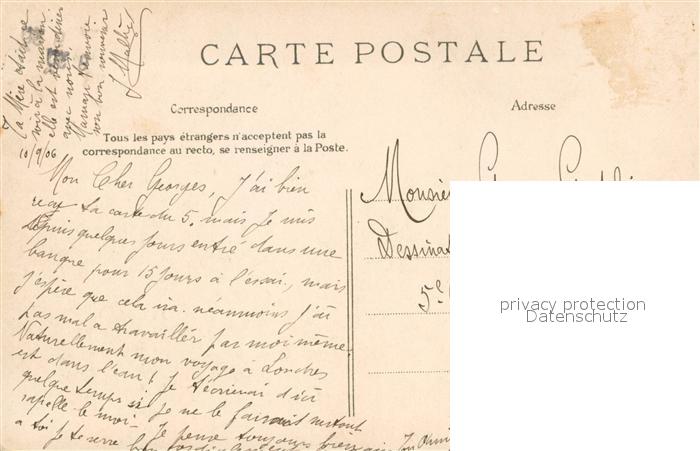 CARTE POSTALE
Correspondance
Adresse
Tous les pays étrangers n'acceptent pas la
correspondance au recto, se renseigner à la Poste.
Ta Mère était ce
soir à la maison
elle est venue diner
avec nous.
Maman t'envoie
son bon souvenir
10/9/06
Mon Cher Georges, J'ai bien
reçu ta carte du 5. mais Je suis
depuis quelques jours entré dans une
banque pour 15 jours à l'essai, mais
j'espère que cela ira. néanmoins j'ai
pas mal a travailler par moi même.
Naturellement mon voyage à Londres
est dans l'eau! Je t'écrirai d'ici
quelque temps si Je ne le faisait surtout
rapelle le moi - Je pense toujours
a toi Je te serre
Monsieur
Dessinat
5e
privacy protection
Datenschutz